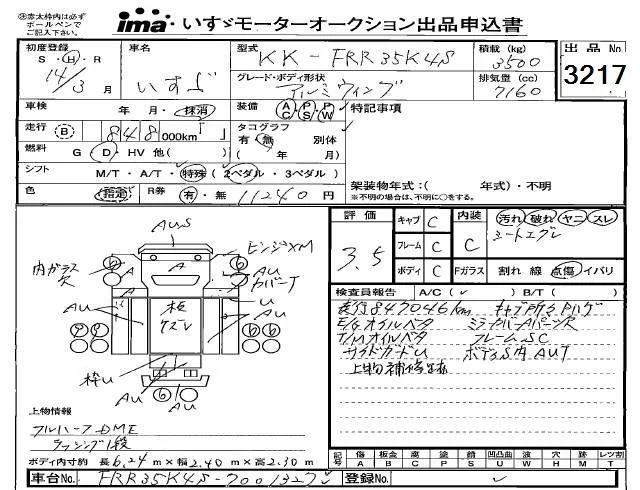 ※赤太枠内は必ず
ボールペンで
ご記入下さい。
ima いすゞモーターオークション出品申込書
初度登録 車名 型式 KK-FRR35K4S 積載 (kg) 3500 出品No
S・H・R 14/3月 いすゞ グレード・ボディ形状 アルミウィング 排気量 (cc) 7160 3217
車検 年・月・抹消 装備 AC PS PW 特記事項
走行 B 848 000km タコグラフ 有・無 別体
燃料 G D・HV 他( ) ( 年 月)
シフト M/T・A/T・特殊 (2ペダル・3ペダル) 架装物年式:( 年式)・不明
※不明の場合は、不明に○をする。
色 指定 R券 有・無 11240円
評価 3.5 キャブ C 内装 C 汚れ 破れ ヤニ スレ
フレーム C シートエグレ
ボディ C Fガラス 割れ 線 点傷 イバリ
AUS
ヒンジXM
内ガラス欠
A
AU
カバーT
U
AU
板
AU
6
6
枠U
AU
6
AU
検査員報告 A/C( ) B/T( )
走行847046km
E/Gオイルベタ
T/Mオイルベタ フレームSC
サイドガードU ボディS内AUT
上物補修跡
上物情報
フルハーフDME
ラッシング1段
ボディ内寸約 長6.24m×幅2.40m×高2.30m
記号 傷 A 板金 B 腐 C 塗 P 錆 S 凹凸曲 U 要 W 欠 X 穴 H 跡 M レツ割 T
車台No. FRR35K4S-7001327 登録No.